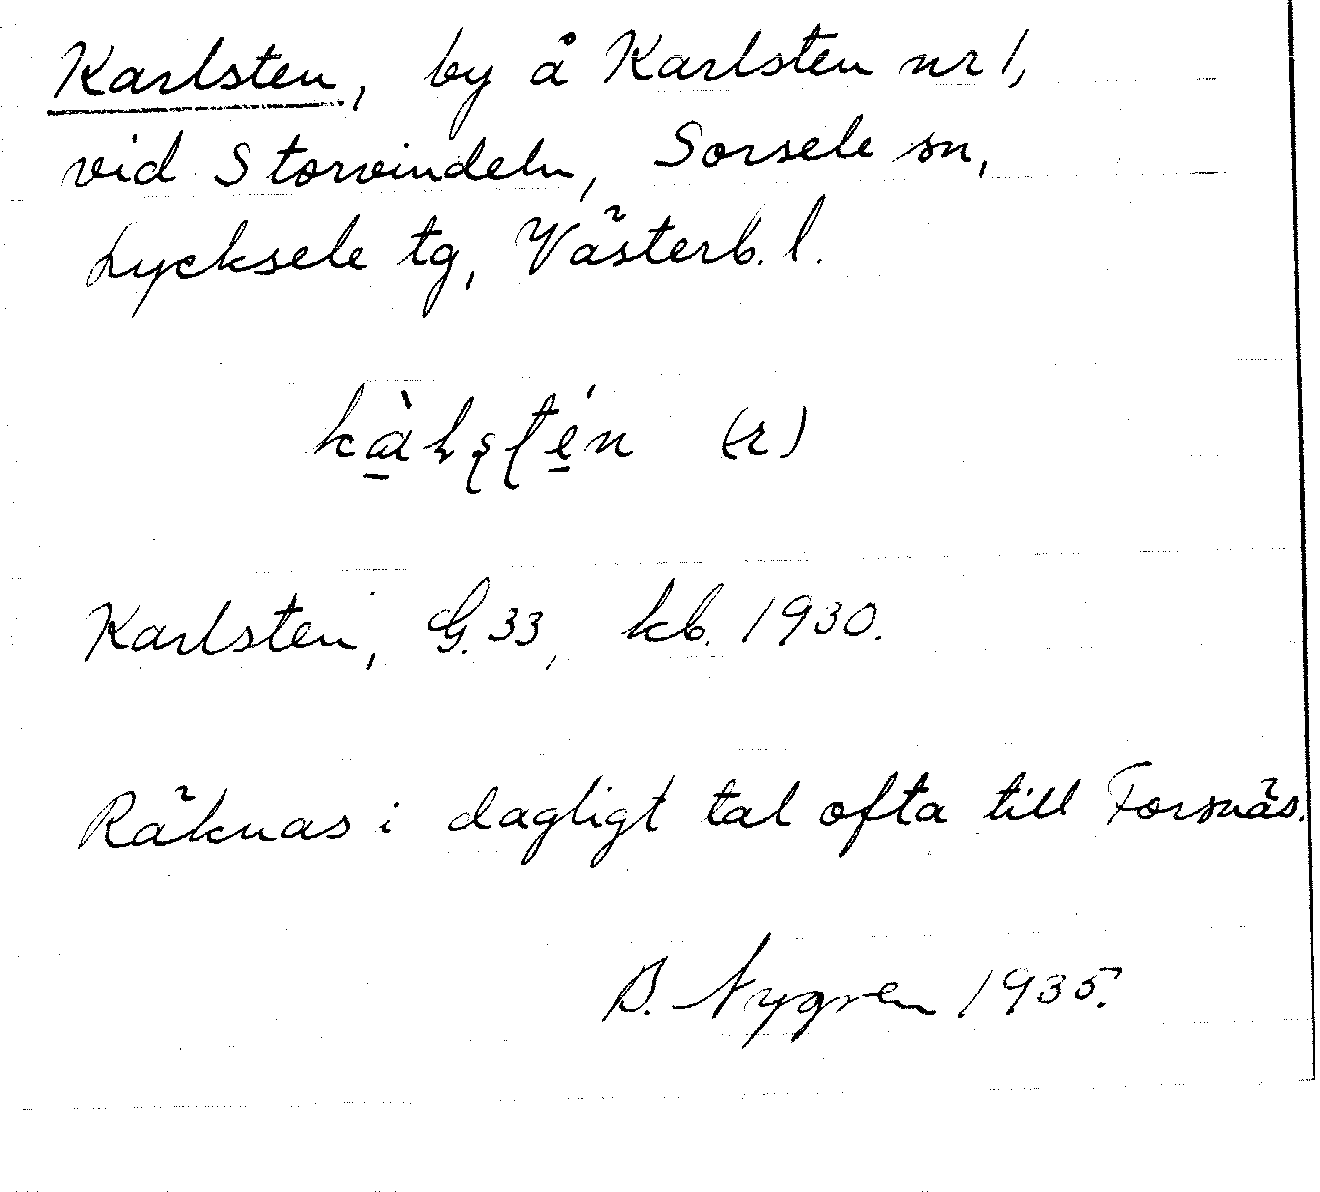 Karlsten, by å Karlsten nr 1,
vid Storvindeln, Sorsele sn,
Lycksele tg, Västerb. l.
(-r)
Karlsten, G. 33, kb. 1930.
Räknas i dagligt tal ofta till Forsnäs.
B. Nygren 1935.